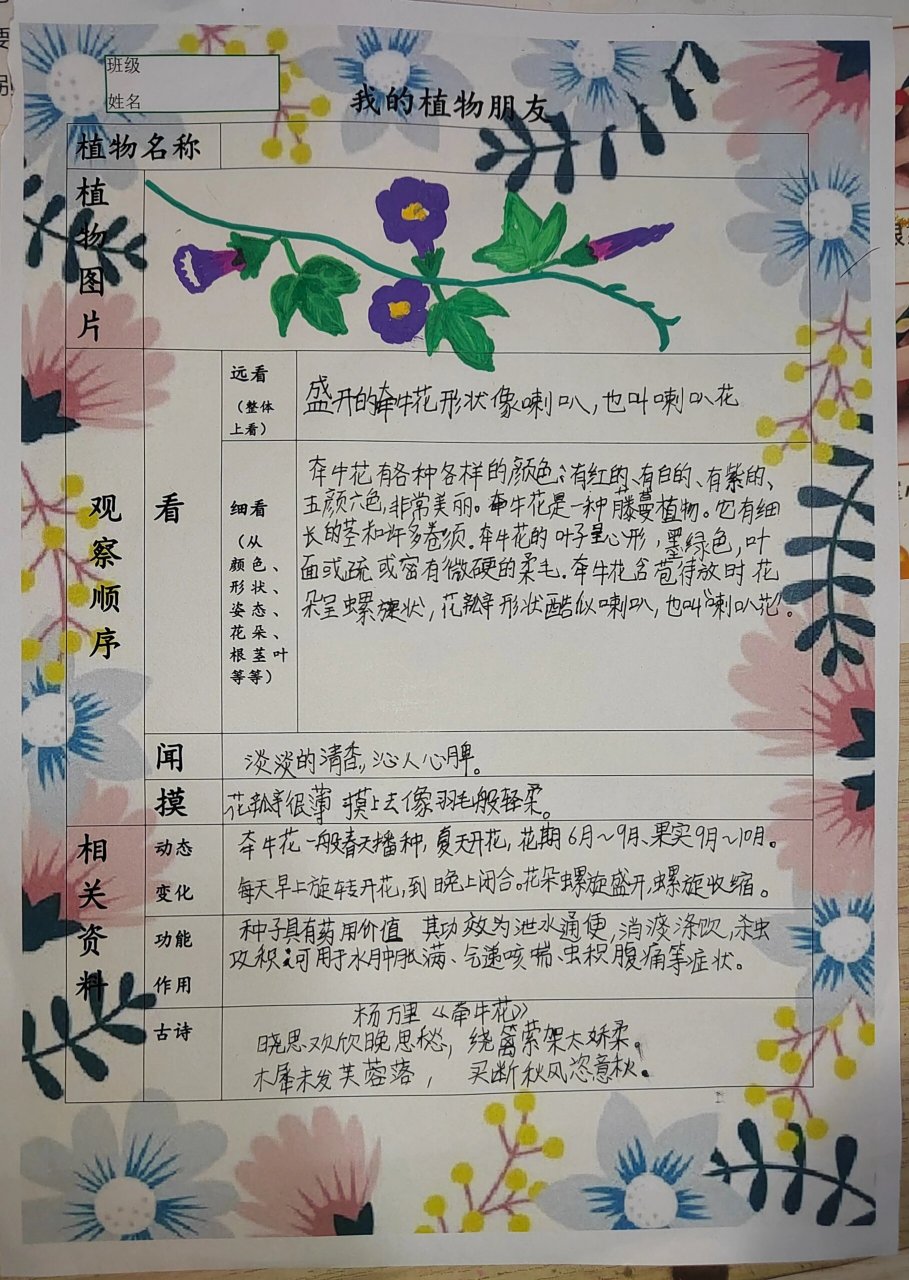 班级
姓名
我的植物朋友
植物名称
植物图片
观察顺序
看
远看
（整体
上看）
盛开的牵牛花形状像喇叭，也叫喇叭花
细看
（从
颜色、
形状、
姿态、
花朵、
根茎叶
等等）
牵牛花有各种各样的颜色：有红的、有白的、有紫的、
五颜六色，非常美丽。牵牛花是一种藤蔓植物。它有细
长的茎和许多卷须。牵牛花的叶子呈心形，墨绿色，叶
面或疏或密有微硬的柔毛。牵牛花含苞待放时花
朵呈螺旋状，花瓣形状酷似喇叭，也叫“喇叭花”。
闻
淡淡的清香，沁人心脾。
摸
花瓣很薄 摸上去像羽毛般轻柔。
相关资料
动态
变化
牵牛花一般春天播种，夏天开花，花期6月～9月、果实9月～10月。
每天早上旋转开花，到晚上闭合。花朵螺旋盛开，螺旋收缩。
功能
作用
种子具有药用价值 其功效为泄水通便，消痰涤饮，杀虫
攻积；可用于水肿胀满、气逆咳喘、虫积腹痛等症状。
古诗
杨万里《牵牛花》
晓思欢欣晚思愁，绕篱萦架太娇柔。
木犀未发芙蓉落，买断秋风恣意秋。